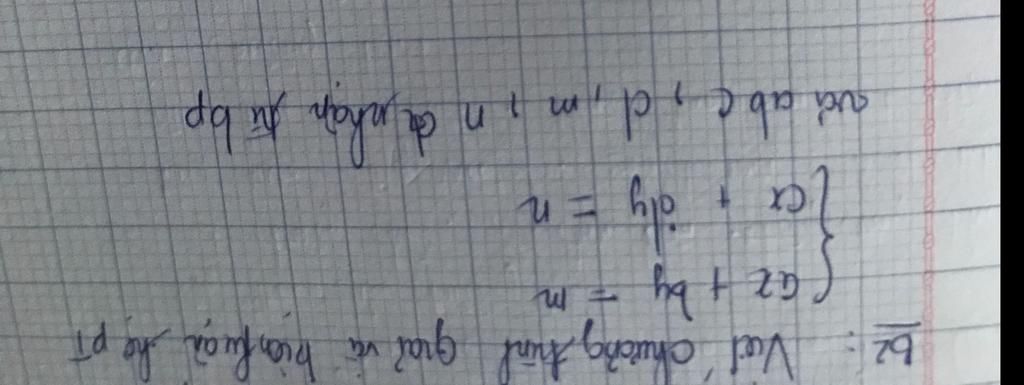 b2: Viết chương trình giải và biện luận hệ pT
{ ax + by = m
{ cx + dy = n
với abc, d, m, n đc nhập từ bp